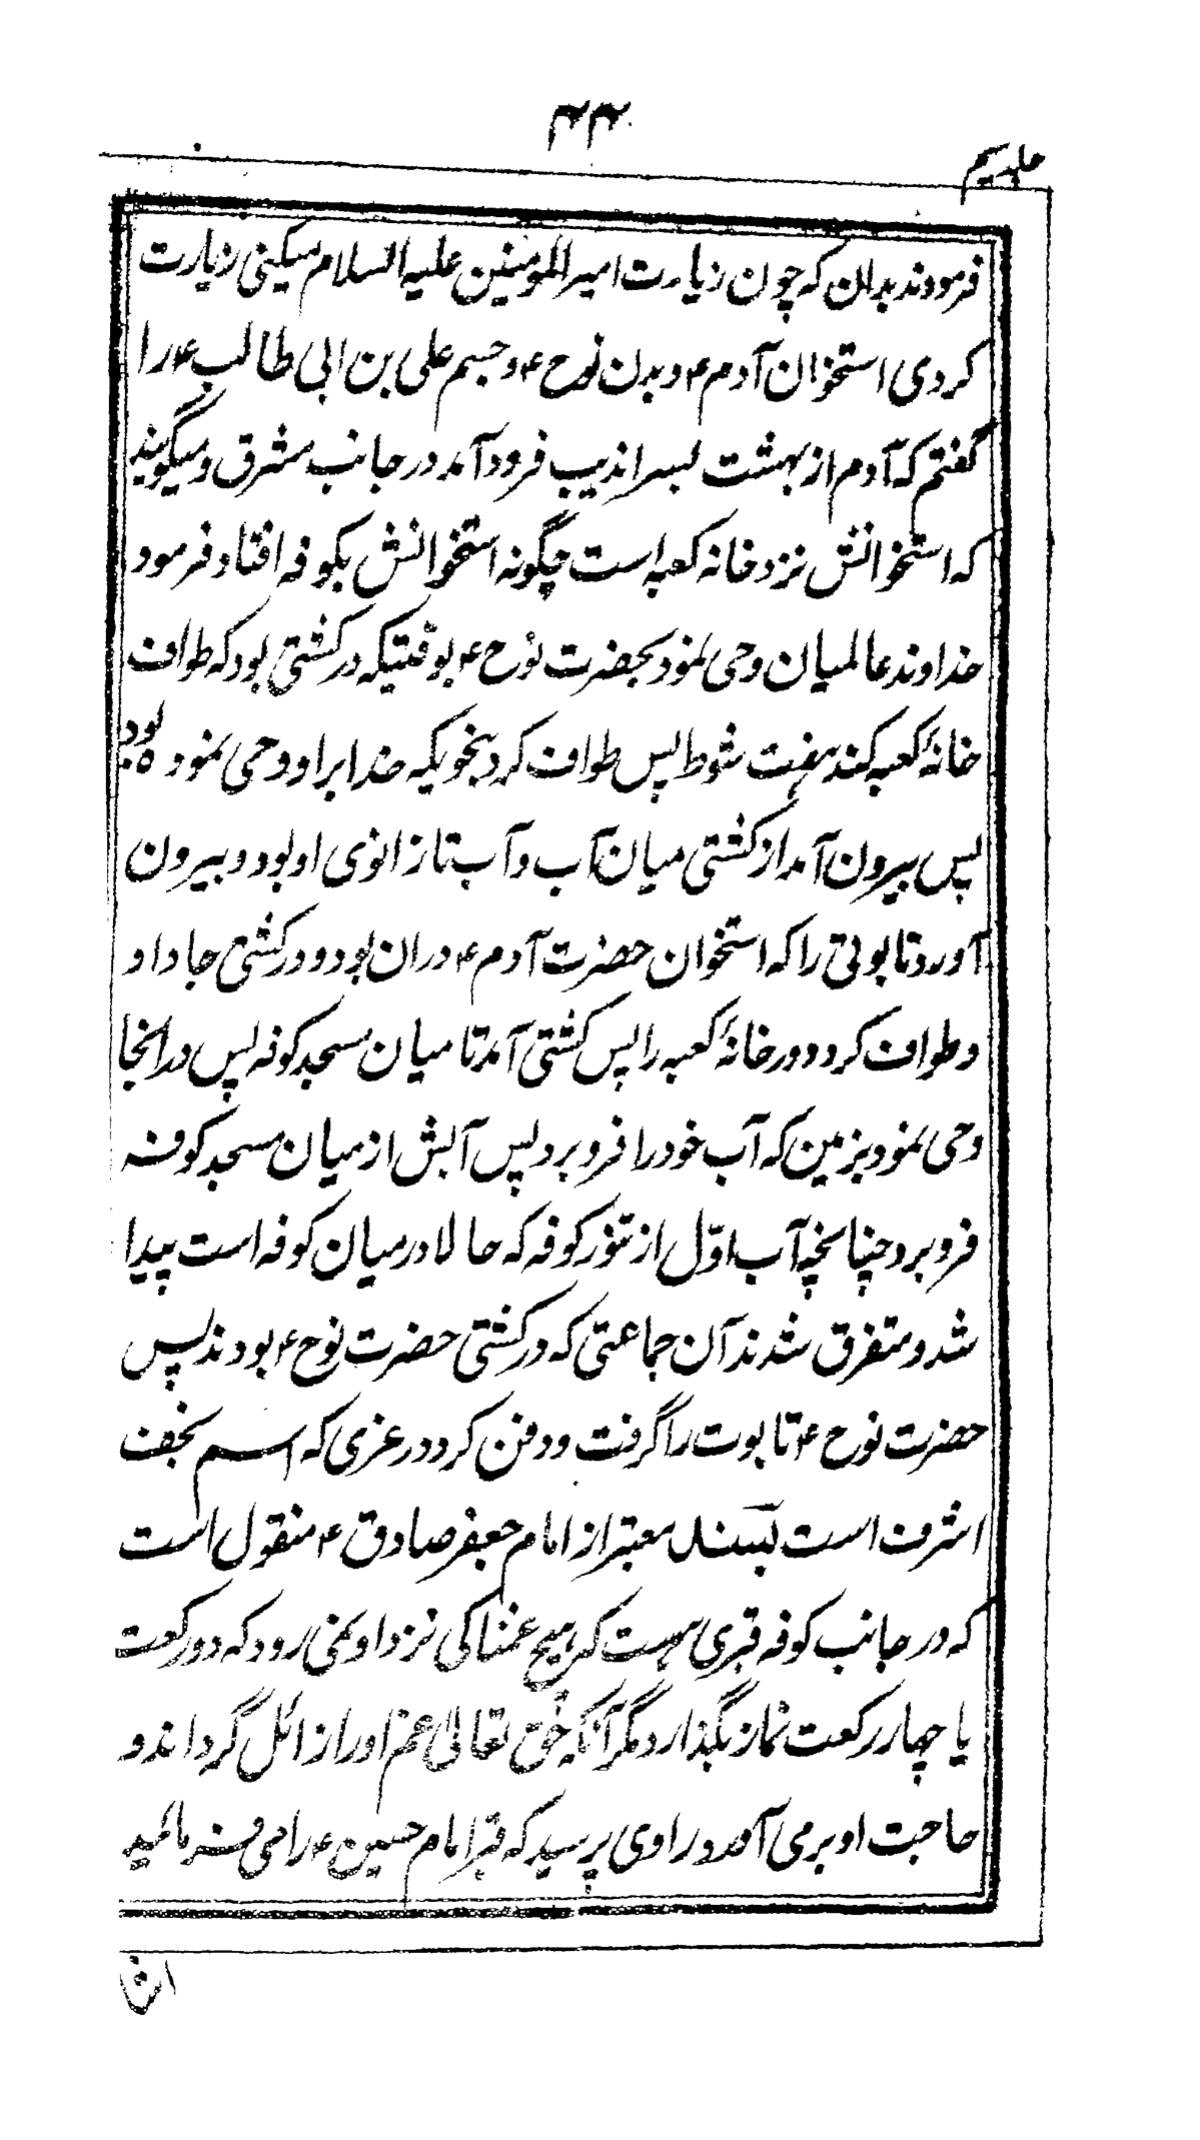 ۴۴
جلد سیم
فرمودند بدان که چون زیارت امیر المومنین علیه السلام میکنی زیارت
کردی استخوان آدم ۴ و بدن نوح ۴ و جسم علی بن ابی طالب ۴ را
گفتم که آدم از بهشت بسراندیب فرود آمد در جانب مشرق و میگویند
که استخوانش نزد خانه کعبه است چگونه استخوانش بکوفه افتاد فرمود
خداوند عالمیان وحی نمود بحضرت نوح ۴ بوقتیکه در کشتی بود که طواف
خانهٔ کعبه کند هفت شوط پس طواف کرد بنحویکه خدا برا و وحی نموده بود
پس بیرون آمد از کشتی میان آب و آب تا زانوی او بود و بیرون
آورد تابوتی را که استخوان حضرت آدم ۴ دران بود و در کشتی جا داد
و طواف کرد دور خانهٔ کعبه را پس کشتی آمد تا میان مسجد کوفه پس در انجا
وحی نمود بزمین که آب خود را فرو برد پس آبش از میان مسجد کوفه
فرو برد چنانچه آب اوّل از تنور کوفه که حالا در میان کوفه است پیدا
شد و متفرق شدند آن جماعتی که در کشتی حضرت نوح ۴ بودند پس
حضرت نوح ۴ تابوت را گرفت و دفن کرد در غری که اسم نجف
اشرف است بسند معتبر از امام جعفر صادق ۴ منقول است
که در جانب کوفه قبری هست که هیچ غمناکی نزد او نمی رود که دو رکعت
یا چهار رکعت نماز بگذارد مگر آنکه حق تعالیٰ غم او را زائل گرداند و
حاجت او برمی آورد راوی پرسید که قبر امام حسین ۴ را می فرمائید